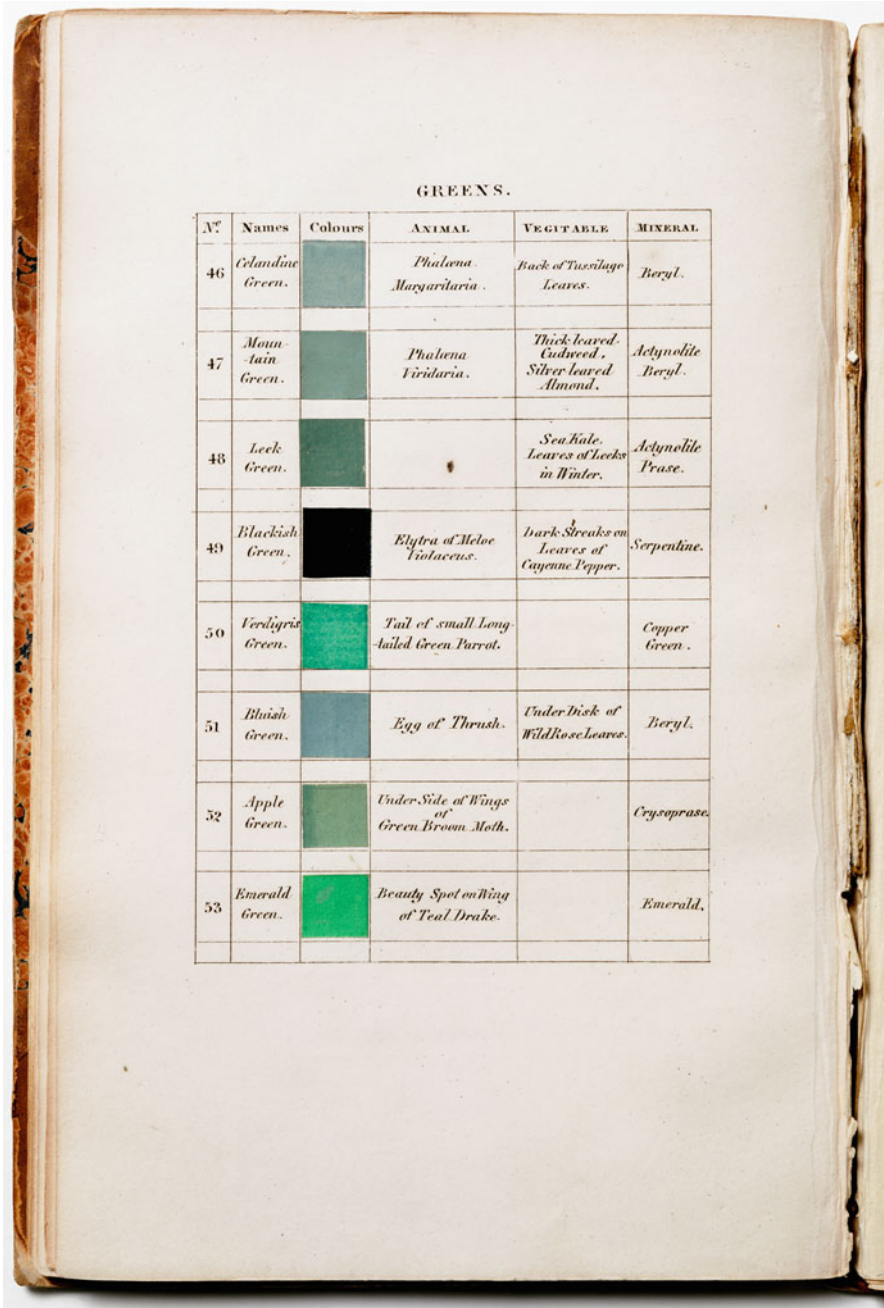 GREENS.
No. Names Colours ANIMAL VEGITABLE MINERAL
46
Celandine
Green.
Phalœna
Margaritaria.
Back of Tussilago
Leaves.
Beryl.
47
Moun-
-tain
Green.
Phalœna
Viridaria.
Thick leaved
Cudweed.
Silver leaved
Almond.
Actynolite
Beryl.
48
Leek
Green.
Sea Kale.
Leaves of Leeks
in Winter.
Actynolite
Prase.
49
Blackish
Green.
Elytra of Meloe
Violaceus.
Dark Streaks on
Leaves of
Cayenne Pepper.
Serpentine.
50
Verdigris
Green.
Tail of small Long-
-tailed Green Parrot.
Copper
Green.
51
Bluish
Green.
Egg of Thrush.
Under Disk of
Wild Rose Leaves.
Beryl.
52
Apple
Green.
Under Side of Wings
of
Green Broom Moth.
Crysoprase.
53
Emerald
Green.
Beauty Spot on Wing
of Teal Drake.
Emerald.